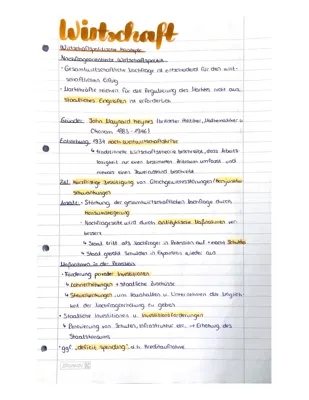 Wirtschaft
Wirtschaftspolitische Konzepte
Nachfrageorientierte Wirtschaftspolitik
- Gesamtwirtschaftliche Nachfrage ist entscheidend für den wirt-
schaftlichen Erfolg
- Marktkräfte reichen für die Regulierung des Marktes nicht aus
staatliches Eingreifen ist erforderlich
Gründer: John Maynard Keynes (britischer Politiker, Mathematiker u.
Ökonom, 1883 - 1946)
Entstehung: 1934 nach Weltwirtschaftskrise
↳ traditionelle Wirtschaftstheorie beschreibt, dass Arbeits-
losigkeit nur einen bestimmten Zeitraum umfasst und
niemals einen Dauerzustand beschreibt
Ziel: kurzfristige Beseitigung von Gleichgewichtsstörungen/ Konjunktur-
schwankungen
Ansatz: - Stärkung der gesamtwirtschaftlichen Nachfrage durch
Konsumsteigerung
- Nachfrageseite wird durch antizyklische Maßnahmen ver-
bessert
↳ Staat tritt als Nachfrager in Rezession auf → macht Schulden
↳ Staat gleicht Schulden in Expansion wieder aus
Maßnahmen in der Rezession
- Förderung privater Investitionen
↳ Lohnerhöhungen + staatliche Zuschüsse
↳ Steuersenkungen, um Haushalten u. Unternehmen die Möglich-
keit der Nachfrageerhöhung zu geben
- Staatliche Investitionen u. Investitionsförderungen
↳ Renovierung von Schulen, Infrastruktur etc. → Erhöhung des
Staatskonsums
- ggf. „deficit spending", d.h. Kreditaufnahme